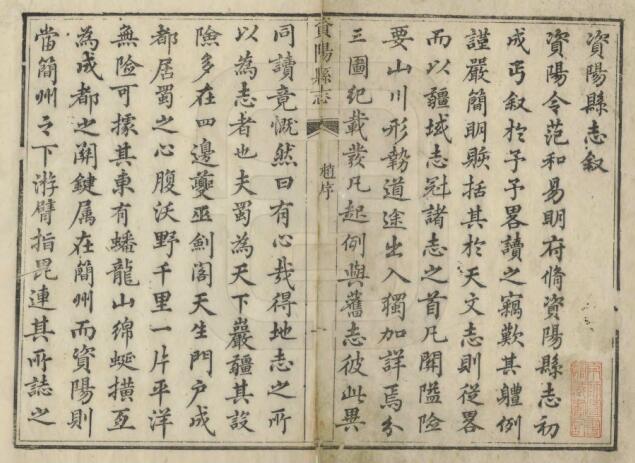 資陽縣志叙
資陽令范和易明府脩資陽縣志初
成丐叙於予予畧讀之竊歎其軆例
謹嚴簡明賅括其於天文志則從畧
而以疆域志冠諸志之首凡関隘險
要山川形勢道途出入獨加詳焉分
三圖紀載發凡起例與舊志彼此異
資陽縣志
趙序
同讀竟慨然曰有心哉得地志之所
以為志者也夫蜀為天下巖疆其設
險多在四邊夔巫劍閣天生門户成
都居蜀之心腹沃野千里一片平洋
無險可據其東有蟠龍山綿蜒橫亙
為成都之関鍵属在簡州而資陽則
當簡州之下游臂指毘連其所誌之